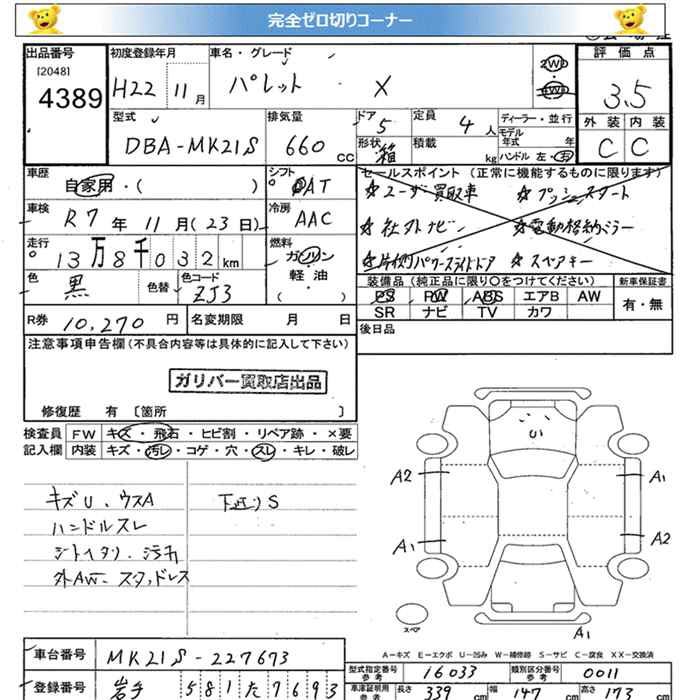 完全ゼロ切りコーナー
出品番号
[2048]
4389
初度登録年月
H22 11月
車名・グレード
パレット X
2WD
4WD
評価点
3.5
型式
DBA-MK21S
排気量
660 cc
ドア
5
形状
箱
定員
4人
積載
kg
ディーラー・並行
モデル年式 年
ハンドル 左・右
外装 内装
C C
車歴
自家用・( )
シフト
DAT
セールスポイント (正常に機能するものに限ります)
☆ユーザー買取車 ☆プッシュスタート
☆社外ナビ ☆電動格納ミラー
☆片側パワースライドドア ☆スペアキー
車検
R7年11月(23日)
冷房
AAC
走行
13万8千032km
燃料
ガソリン
軽・油
( )
色
黒
色替
色コード
ZJ3
装備品 (純正品に限り○をつけてください)
PS PW ABS エアB AW
SR ナビ TV カワ
新車保証書
有・無
R券 10,270円
名変期限 月 日
後日品
注意事項申告欄(不具合内容等は具体的に記入して下さい)
ガリバー買取店出品
修復歴 有 〔箇所 〕
検査員
記入欄
FW キズ・飛石・ヒビ割・リペア跡・×要
内装 キズ・汚レ・コゲ・穴・スレ・キレ・破レ
キズU、ウスA
下廻りS
ハンドルスレ
シートイタミ・汚れ
外AW-スタッドレス
A2
A1
A1
A2
スペア
A1
A-キズ E-エクボ U-凹み W-補修跡 S-サビ C-腐食 XX-交換済
車台番号 MK21S-227673
登録番号 岩手 581た7693
型式指定番号
参考
16033
類別区分番号
参考
0011
車検証明用
参考
長さ 339cm 幅 147cm 高さ 173cm